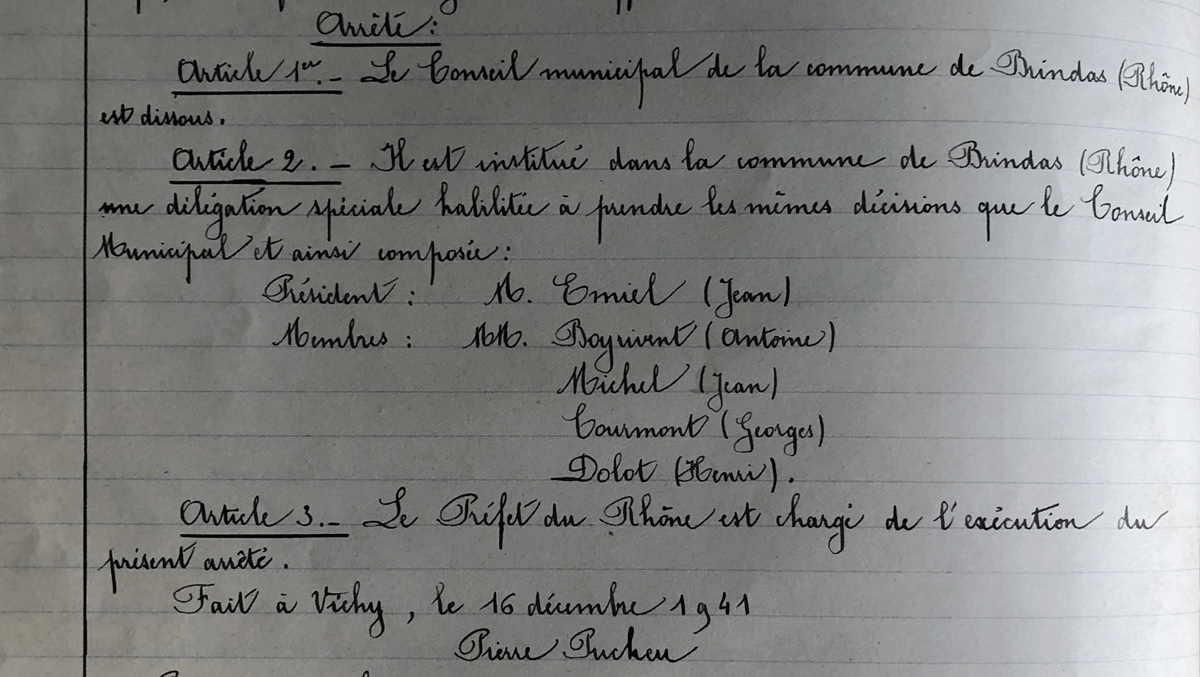 Arrêté :
Article 1er. - Le Conseil municipal de la commune de Brindas (Rhône)
est dissous.
Article 2. - Il est institué dans la commune de Brindas (Rhône)
une délégation spéciale habilitée à prendre les mêmes décisions que le Conseil
Municipal et ainsi composée :
Président : M. Emiel (Jean)
Membres : MM. Boyrivent (Antoine)
Michel (Jean)
Courmont (Georges)
Dolot (Henri).
Article 3. - Le Préfet du Rhône est chargé de l'exécution du
présent arrêté.
Fait à Vichy, le 16 décembre 1941
Pierre Pucheu